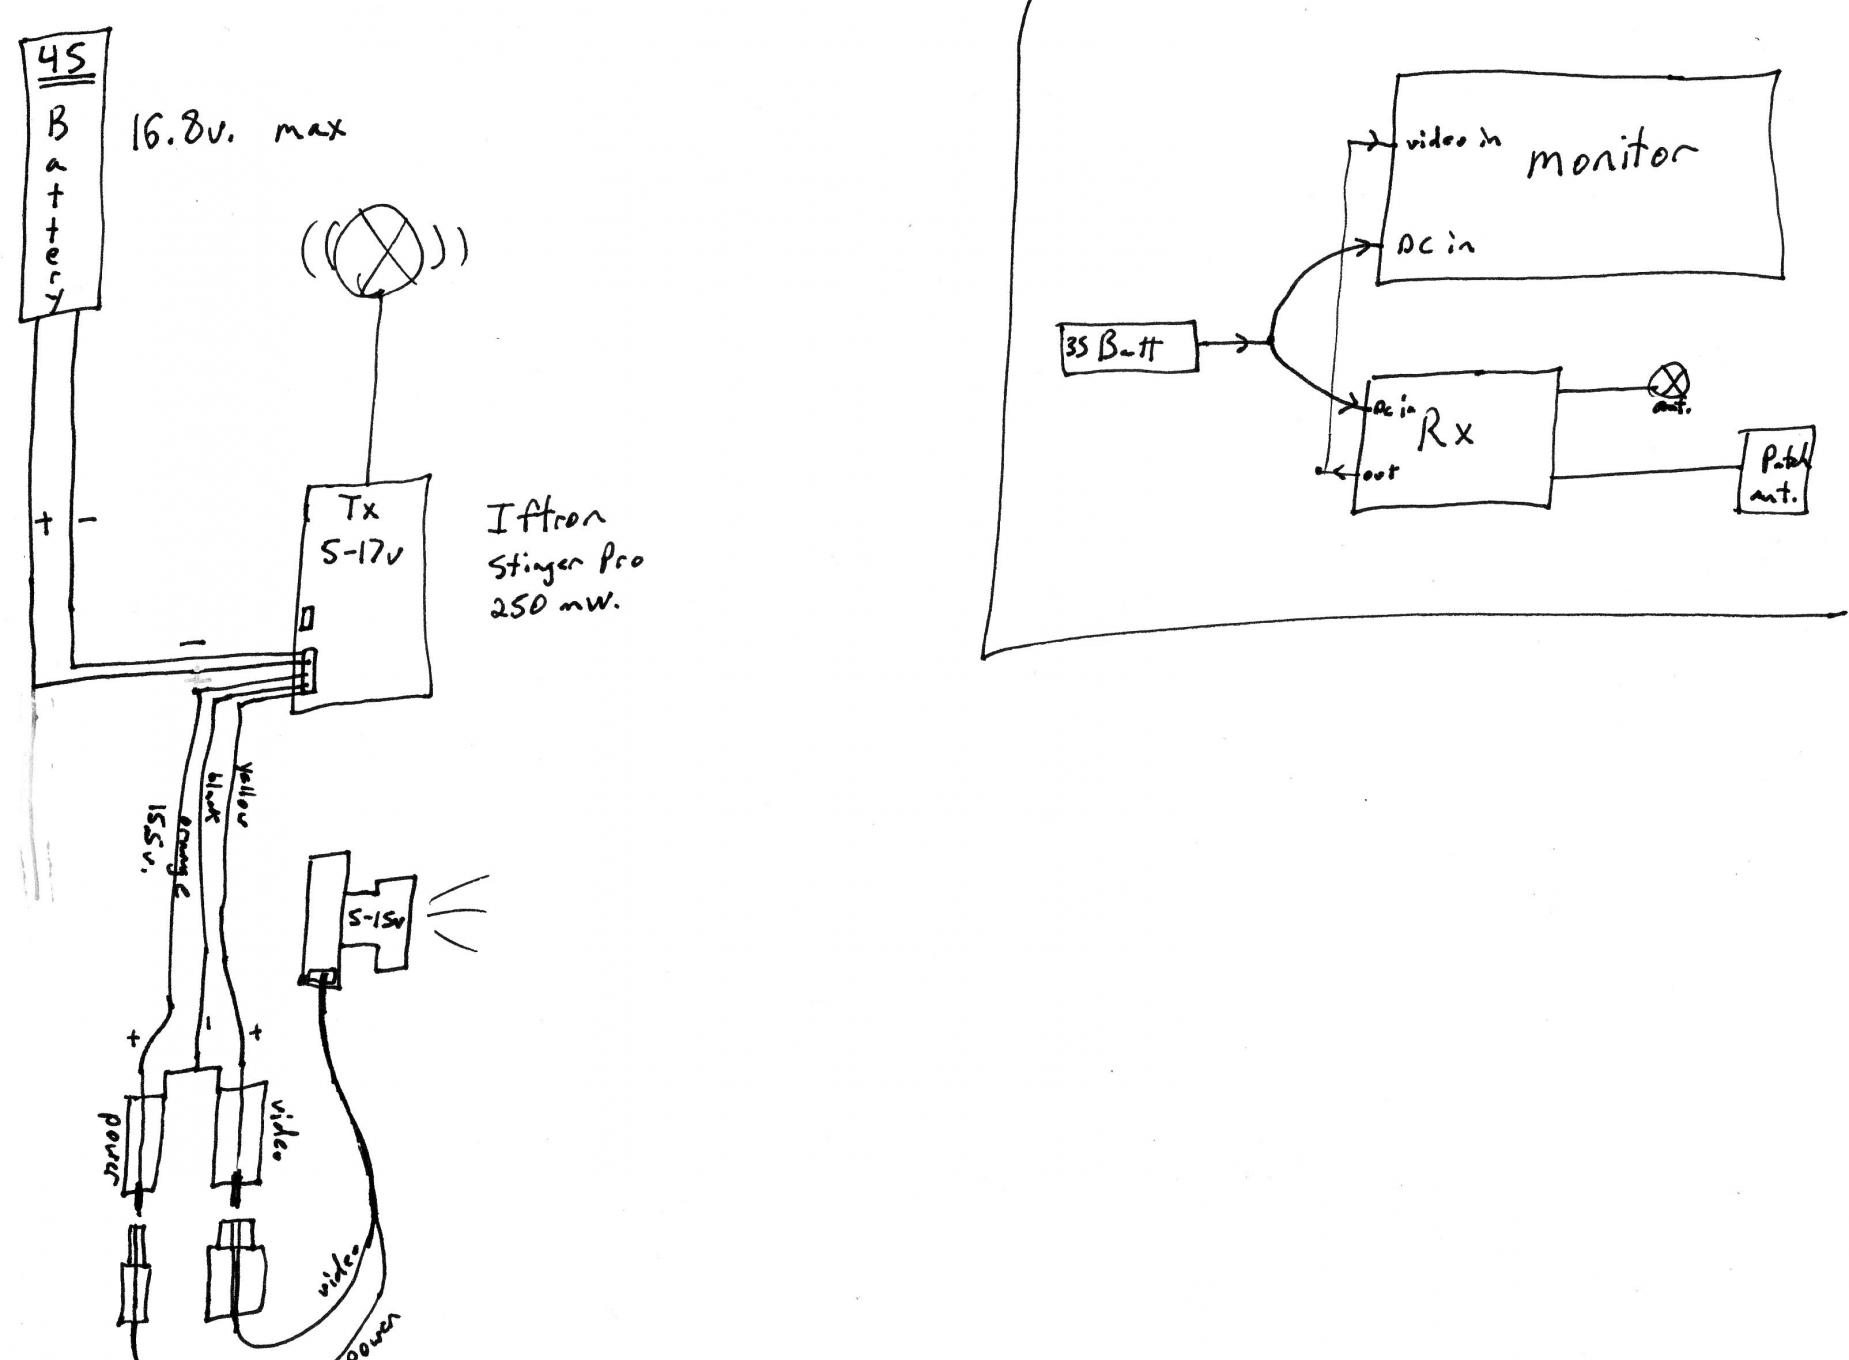 4S
Battery
16.8v. max
+ -
Tx
5-17v
Iftron
Stinger Pro
250 mW.
-
+
yellow
black
orange
5-15v
+ - +
power
video
video
power
video in
monitor
DC in
3S Batt
DC in
Rx
out
ant.
Patch
ant.